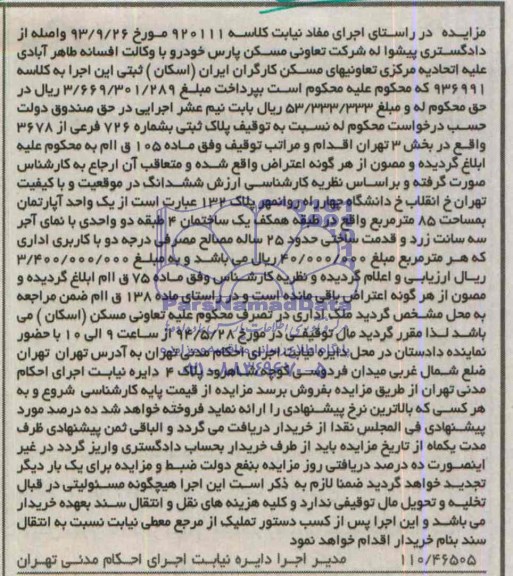 مزایـده در راستای اجرای مفاد نیابت کلاسه ۹۲۰۱۱۱ مورخ ۹۳/۹/۲۶ واصله از
دادگستری پیشوا له شرکت تعاونی مسکن پارس خودرو با وکالت افسانه طاهر آبادی
علیه اتحادیه مرکزی تعاونیهای مسکن کارگران ایران (اسکان) ثبتی این اجرا به کلاسه
۹۳۶۹۹۱ که محکوم علیه محکوم است بپرداخت مبلغ ۳/۶۶۹/۳۰۱/۲۸۹ ریال در
حق محکوم له و مبلغ ۵۳/۳۳۳/۳۳۳ ریال بابت نیم عشر اجرایی در حق صندوق دولت
حسب درخواست محکوم له نسبت به توقیف پلاک ثبتی بشماره ۷۲۶ فرعی از ۳۶۷۸
واقع در بخش ۳ تهران اقدام و مراتب توقیف وفق ماده ۱۰۵ ق اام به محکوم علیه
ابلاغ گردیده و مصون از هر گونه اعتراض واقع شده و متعاقب آن ارجاع به کارشناس
صورت گرفته و براساس نظریه کارشناسی ارزش ششدانگ در موقعیت و با کیفیت
تهران خ انقلاب خ دانشگاه چهار راه روانمهر پلاک ۱۳۲ عبارت است از یک واحد آپارتمان
بمساحت ۸۵ مترمربع واقع در طبقه همکف یک ساختمان ۴ طبقه دو واحدی با نمای آجر
سه سانت زرد و قدمت ساختی حدود ۲۵ ساله مصالح مصرفی درجه دو با کاربری اداری
که هر مترمربع مبلغ ۴۰/۰۰۰/۰۰۰ ریال می باشد و به مبلغ ۳/۴۰۰/۰۰۰/۰۰۰
ریال ارزیابی و اعلام گردیده و نظریه کارشناس وفق ماده ۷۵ ق اام ابلاغ گردیده و
مصون از هر گونه اعتراض باقی مانده است و در راستای ماده ۱۳۸ ق اام ضمن مراجعه
به محل مشخص گردید ملک اداری در تصرف محکوم علیه تعاونی مسکن (اسکان) می
باشد لذا مقرر گردید مال توقیفی در مورخ ۹۴/۵/۲۸ از ساعت ۹ الی ۱۰ با حضور
نماینده دادستان در محل دایره نیابت اجرای احکام مدنی تهران به آدرس تهران تهران
ضلع شمال غربی میدان فردوسی کوچه شاهرود پلاک ۴ دایره نیابت اجرای احکام
مدنی تهران از طریق مزایده بفروش برسد مزایده از قیمت پایه کارشناسی شروع و به
هر کسی که بالاترین نرخ پیشنهادی را ارائه نماید فروخته خواهد شد ده درصد مورد
پیشنهادی فی المجلس نقدا از خریدار دریافت می گردد و الباقی ثمن پیشنهادی ظرف
مدت یکماه از تاریخ مزایده باید از طرف خریدار بحساب دادگستری واریز گردد در غیر
اینصورت ده درصد دریافتی روز مزایده بنفع دولت ضبط و مزایده برای یک بار دیگر
تجدید خواهد گردید ضمنا لازم به ذکر است این اجرا هیچگونه مسئولیتی در قبال
تخلیه و تحویل مال توقیفی ندارد و کلیه هزینه های نقل و انتقال سند بعهده خریدار
می باشد و این اجرا پس از کسب دستور تملیک از مرجع معطی نیابت نسبت به انتقال
سند بنام خریدار اقدام خواهد نمود
۱۱۰/۴۶۵۰۵ مدیر اجرا دایره نیابت اجرای احکام مدنی تهران
ParsNamadData